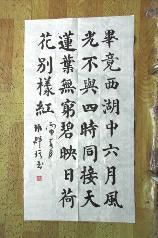 畢竟西湖中六月風
光不與四時同接天
蓮葉無窮碧映日荷
花別樣紅